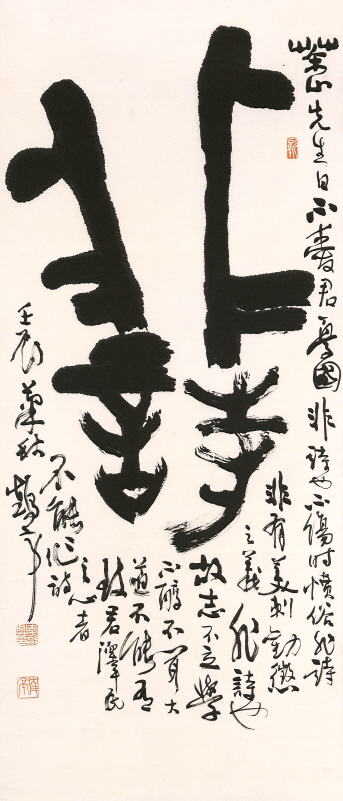 非詩
茶山先生曰不愛君憂國非詩也不傷時憤俗非詩
非有美刺勸懲
之義非詩也
故志不立學
不醇不聞大
道不能有
致君澤民
之心者
不能作詩
壬辰 鶴亭